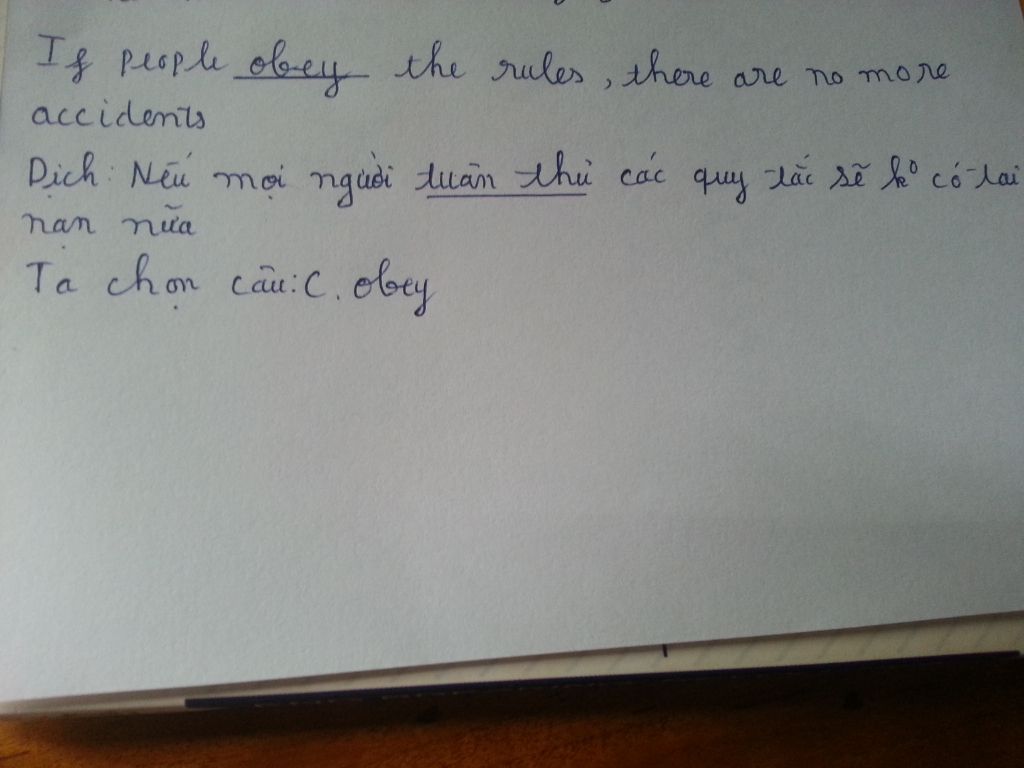 If people obey the rules, there are no more
accidents
Dịch: Nếu mọi người tuân thủ các quy tắc sẽ k° có tai
nạn nữa
Ta chọn câu: C. obey